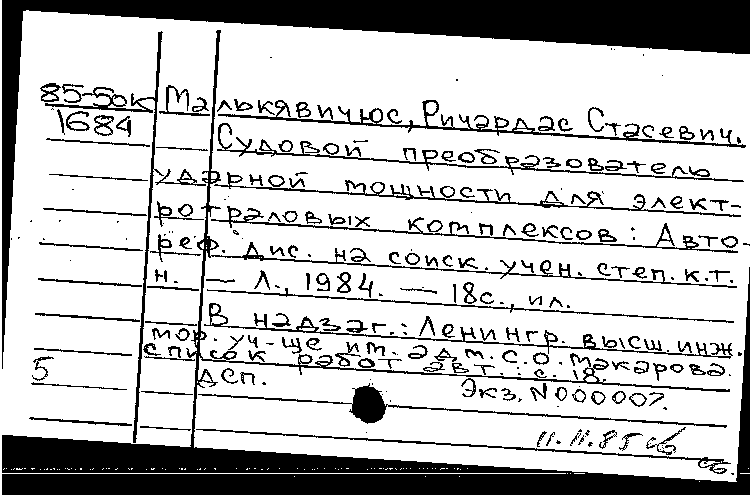 85-5ок Малькявичюс, Ричардас Стасевич.
1684 Судовой преобразователь
ударной мощности для элект-
ротраловых комплексов: Авто-
реф. дис. на соиск. учен. степ. к.т.
н. — Л., 1984. — 18с., ил.
В надзаг.: Ленингр. высш. инж.
мор. уч-ще им. адм. С.О. Макарова.
Список работ авт.: с. 18.
5 ДСП. Экз. N000007.
11.11.85